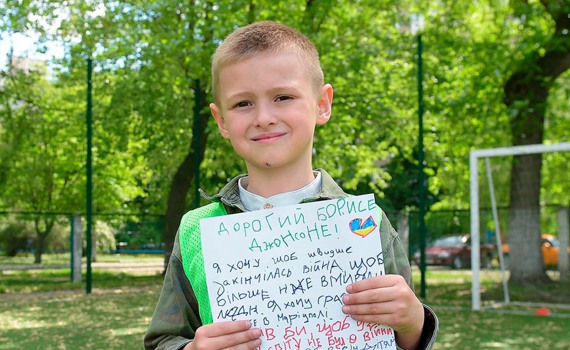 ДОРОГИЙ БОРИСЕ
ДЖОНСОНЕ!
Я ХОЧУ, ЩОБ ШВИДШЕ
ЗАКІНЧИЛАСЬ ВІЙНА, ЩОБ
БІЛЬШЕ НЕ ВМИРАЛИ
ЛЮДИ. Я ХОЧУ
В МАРІУПОЛІ.
В БИ, ЩОБ
СВІТУ НЕ БУЛО ВІЙНИ